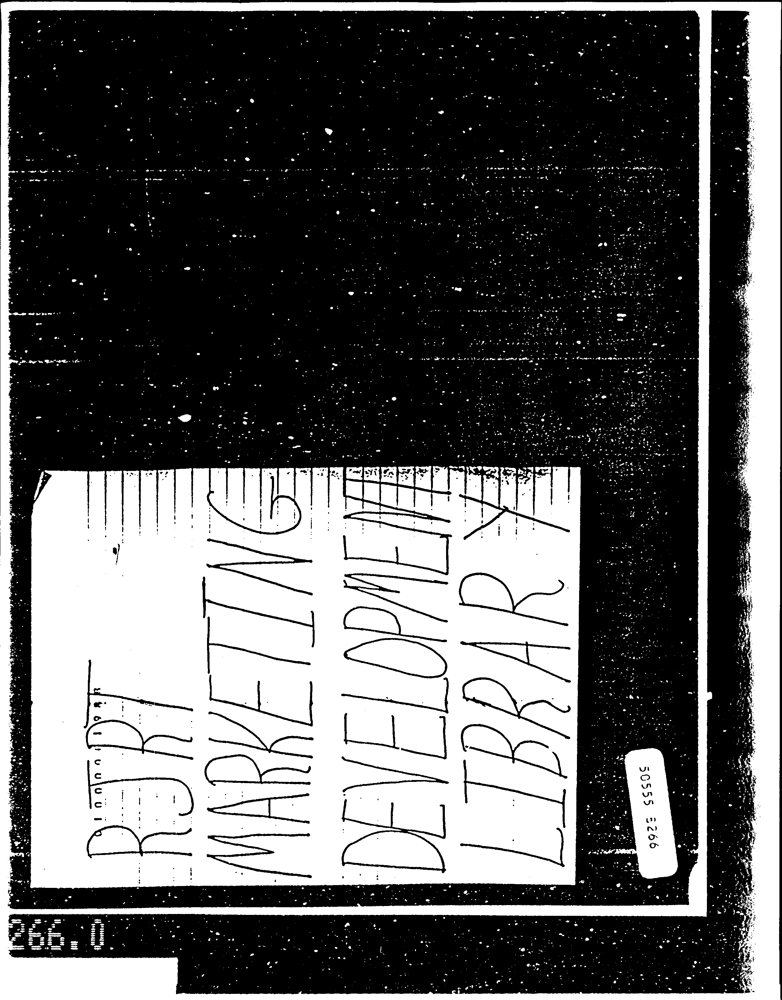 RJRT
MARKETING
DEVELOPMENT
LIBRARY
50555 3266
266.0